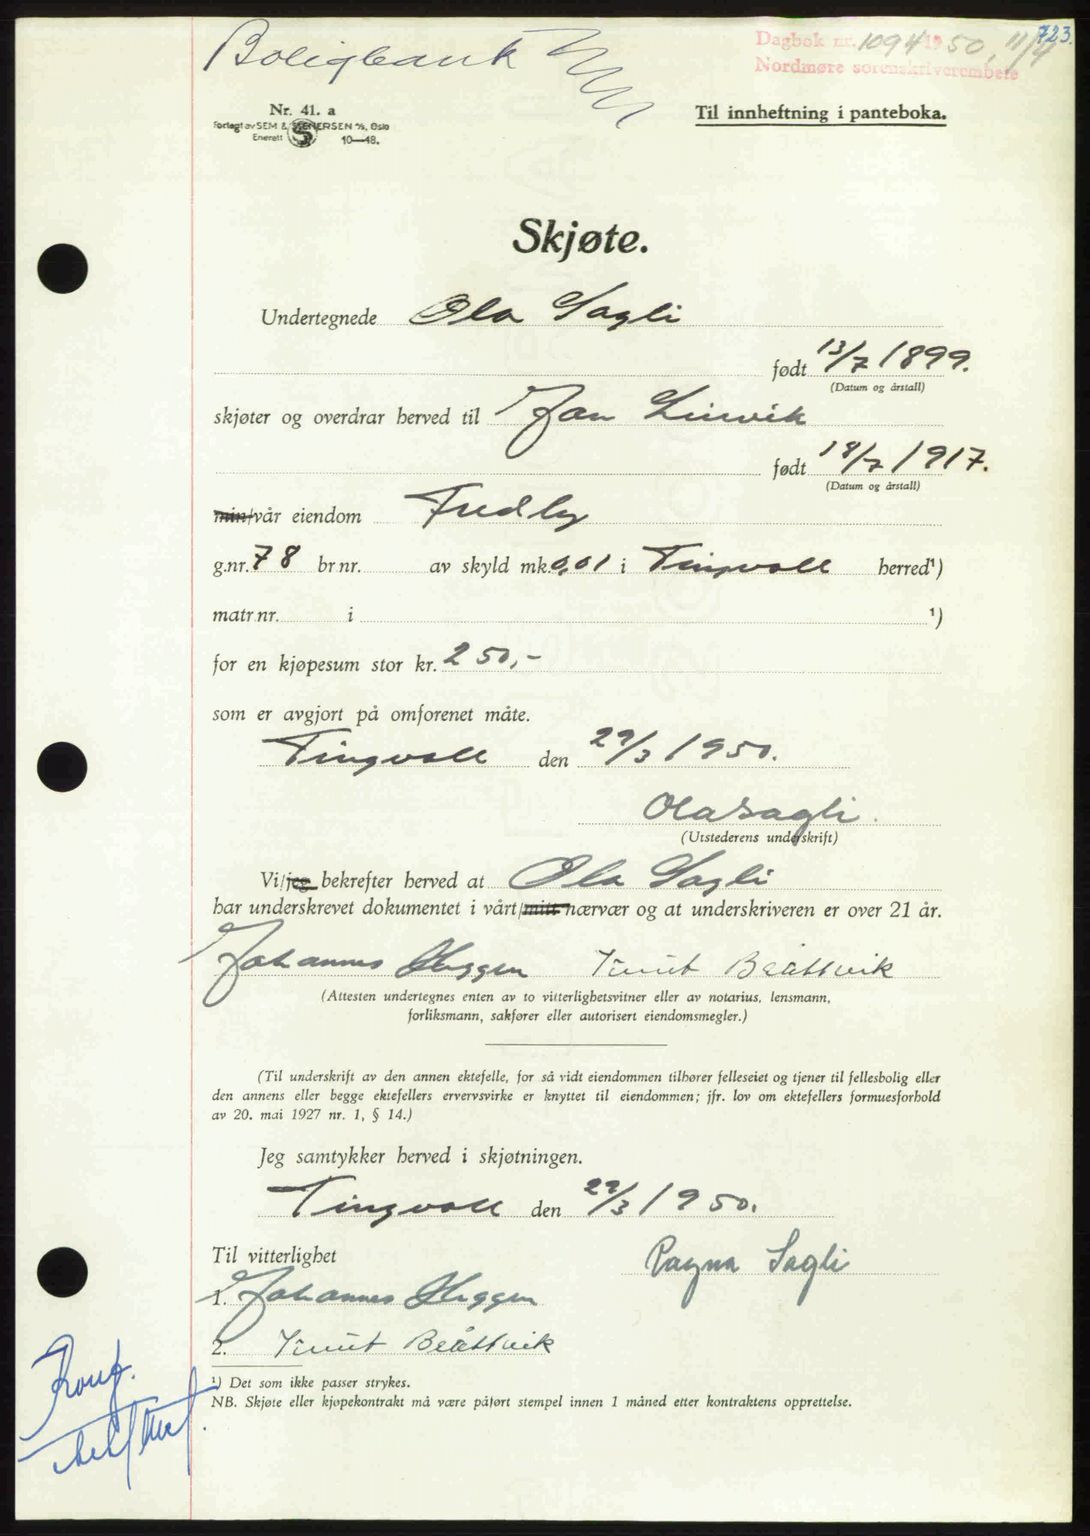 723.
Boligbank
Dagbok nr. 1094 1950, 11/4
Nordmøre sorenskriverembete
Nr. 41. a
Forlagt av SEM & STENERSEN A/S, Oslo
Enerett 10—48.
Til innheftning i panteboka.
Skjøte.
Undertegnede Ola Sagli
født 13/7 1899.
(Datum og årstall)
skjøter og overdrar herved til Jan Linvik
født 18/7 1917.
(Datum og årstall)
min/vår eiendom Fredly
g.nr. 78 br.nr. av skyld mk. 0,01 i Tingvoll herred¹)
matr.nr. i ¹)
for en kjøpesum stor kr. 250,-
som er avgjort på omforenet måte.
Tingvoll den 29/3 1950.
Ola Sagli.
(Utstederens underskrift)
Vi/jeg bekrefter herved at Ola Sagli
har underskrevet dokumentet i vårt/mitt nærvær og at underskriveren er over 21 år.
Johannes Heggen Knut Bråttvik
(Attesten undertegnes enten av to vitterlighetsvitner eller av notarius, lensmann,
forliksmann, sakfører eller autorisert eiendomsmegler.)
(Til underskrift av den annen ektefelle, for så vidt eiendommen tilhører felleseiet og tjener til fellesbolig eller
den annens eller begge ektefellers ervervsvirke er knyttet til eiendommen; jfr. lov om ektefellers formuesforhold
av 20. mai 1927 nr. 1, § 14.)
Jeg samtykker herved i skjøtningen.
Tingvoll den 29/3 1950.
Til vitterlighet Ragna Sagli
1. Johannes Heggen
2. Knut Bråttvik
¹) Det som ikke passer strykes.
NB. Skjøte eller kjøpekontrakt må være påført stempel innen 1 måned etter kontraktens opprettelse.